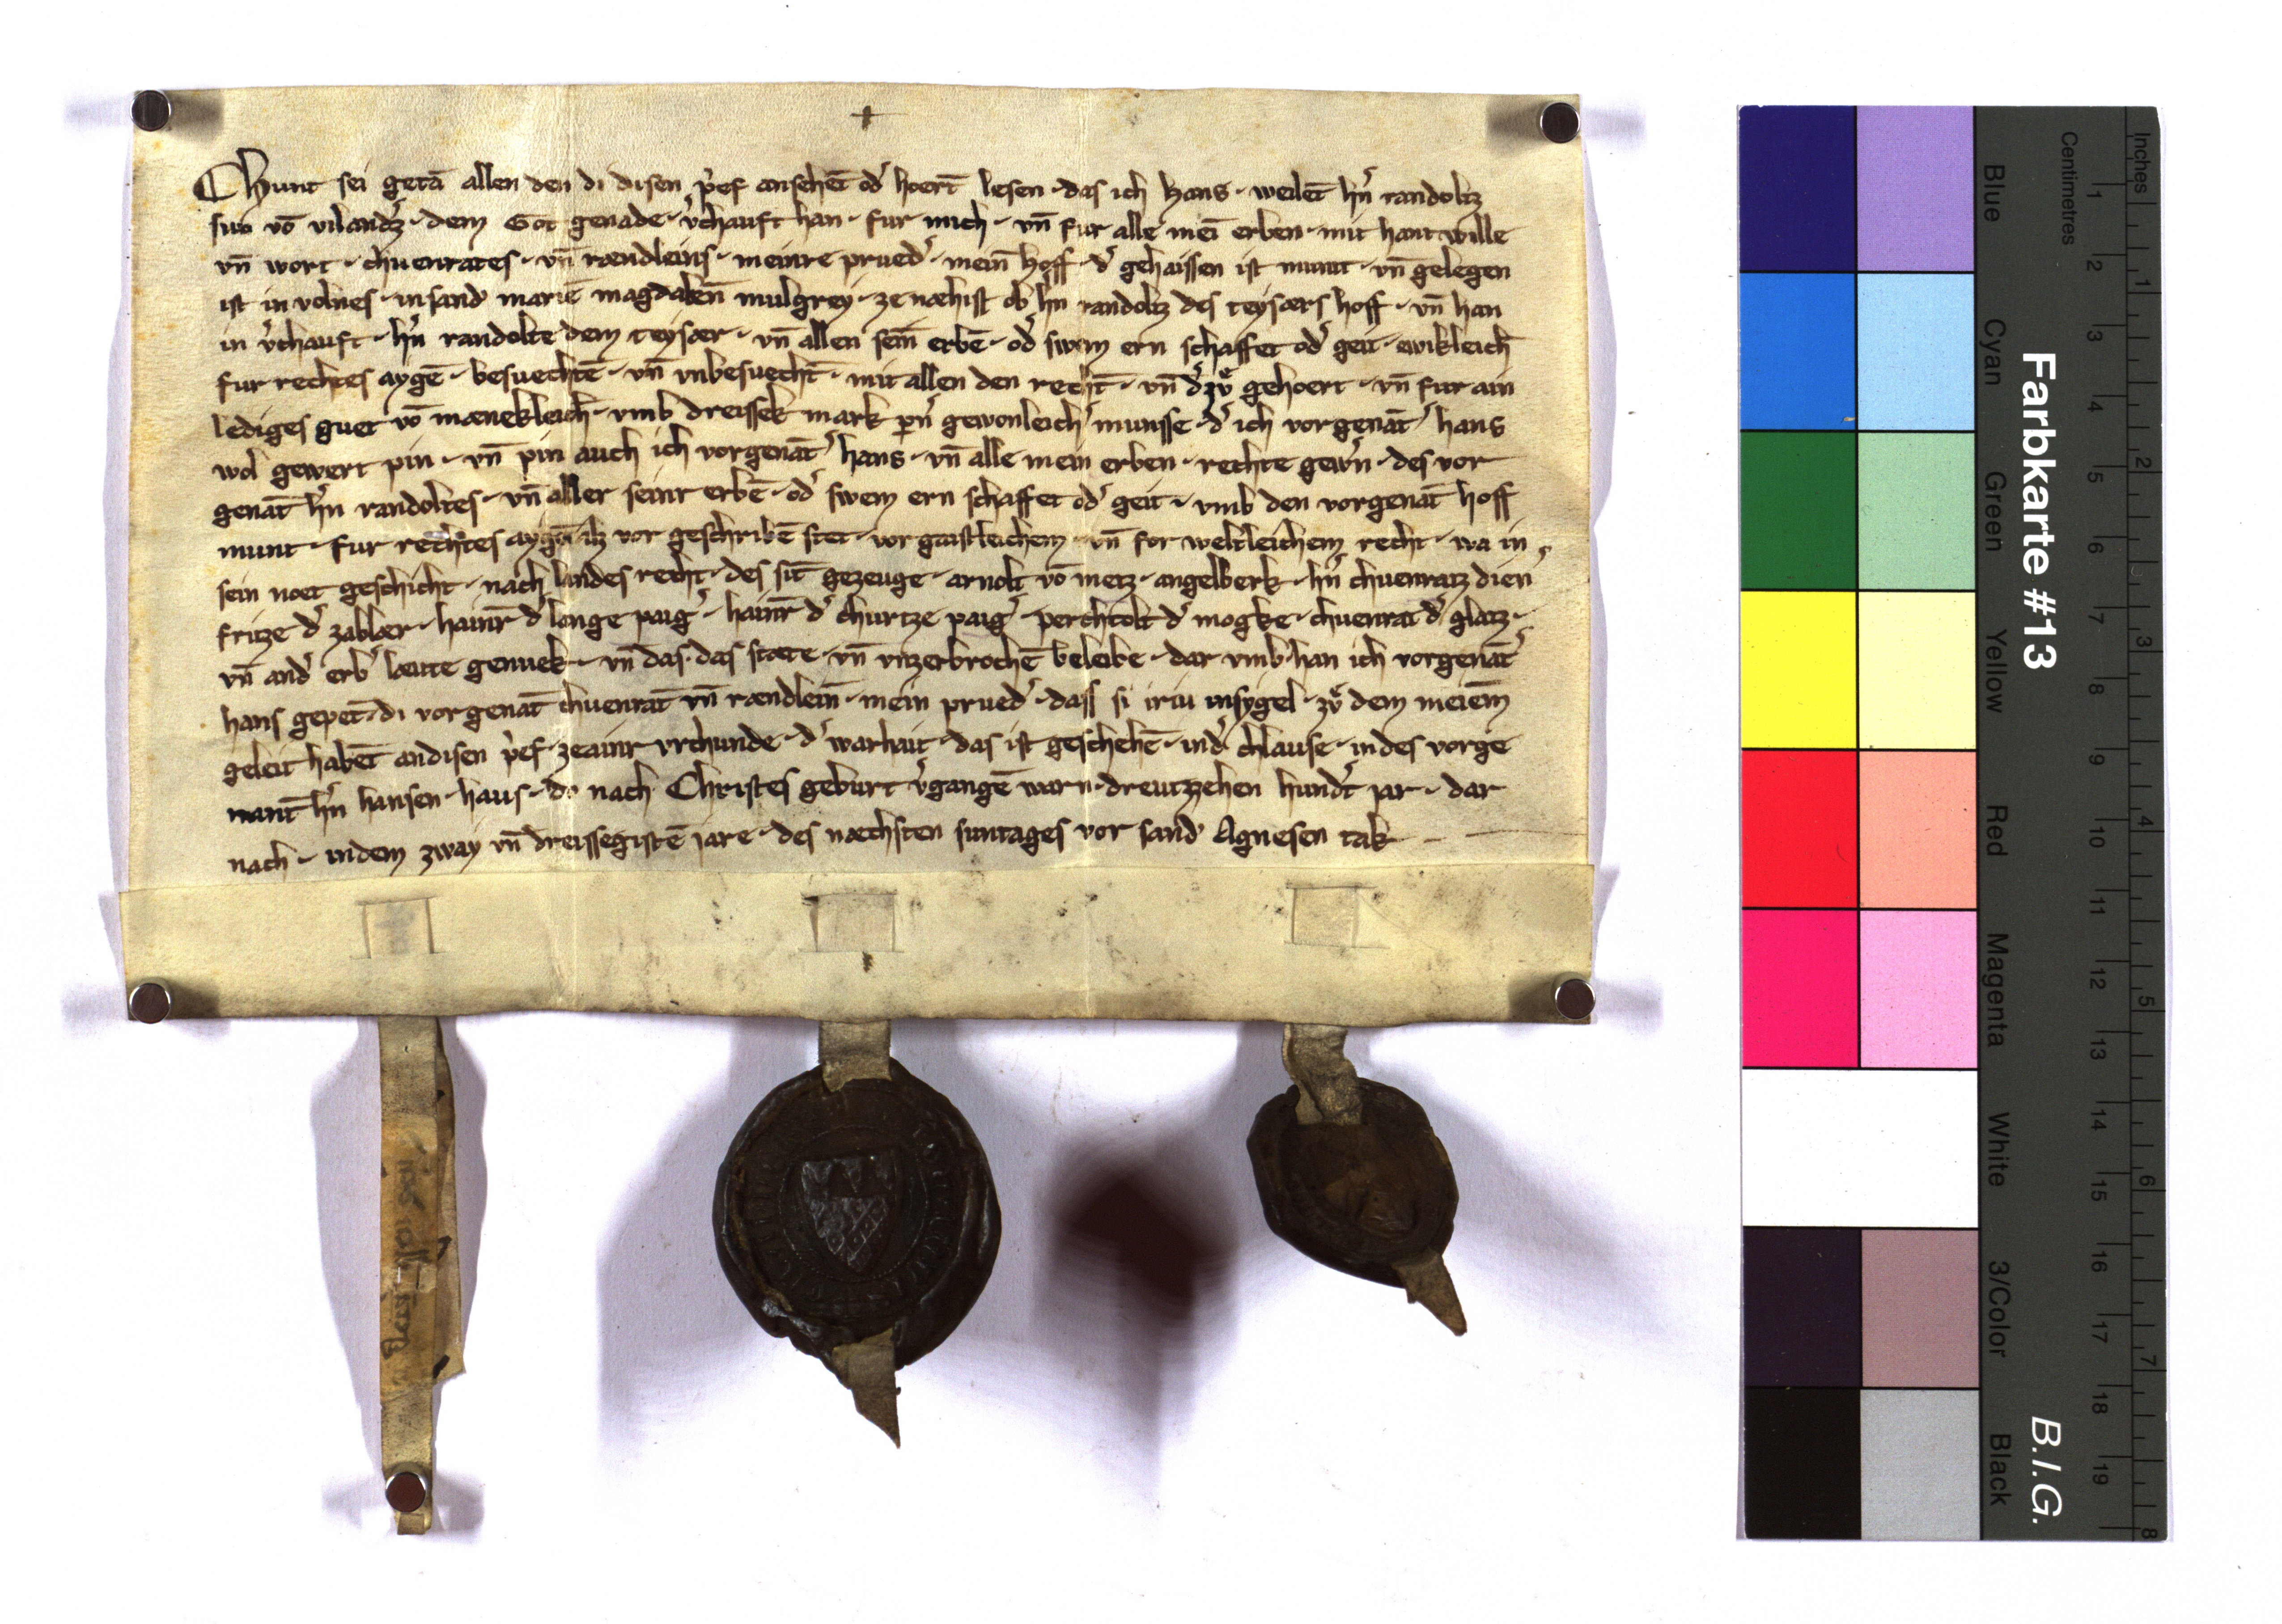 Chunt sei getā allen den di disen p̓ef ansehēt od̓ hoert̄ lesen · das ich Hans · weilēt hn̓ randoltz
sun vō vilandz̓ · dem Got genade · v̓chauft han · fur mich · vn̄ fur alle mei̅ erben · mit hant wille
vn̄ wort · chuenrates · vn̄ rændleins · meinre prued̓ · mein̄ hoff · d̓ gehaissen ist munt · vn̄ gelegen
ist in volnes · in sand mariē magdalen̄ mulgrey · ze næhist ob hn̓ randoltz des teysærs hoff · vn̄ han
in v̓chauft · hn̓ randolte dem teysær · vn̄ allen sein̄ erbē · od̓ swem ern schaffet od̓ geit · ewikleich
fur rechtes aygē · besuechtē · vn̄ vnbesuecht̄ · mit allen den recht̄ · vn̄ d̓ zv̊ gehoert · vn̄ fur ain
lediges guet vō mænekleich · vmb dreissek mark pn̓ gewonleich̓ munsse · d̓ ich vorgenāt̓ hans
wol gewert pin · vn̄ pin auch ich vorgenāt̓ hans · vn̄ alle mein erben · rechte gewn̓ · des vor
genāt hn̓ randoltes · vn̄ aller seinr erbē · od̓ swem ern schaffet od̓ geit · vmb den vorgenāt hoff
munt · fur rechtes aygē · alz vor geschribē stet · vor gaistleichem · vn̄ for weltleichem recht · wa in
sein noet geschicht · nach landes recht · des sit̄ gezeuge · arnolt vō metz · angelberk · hn̓ chuenratz dien̓
fritze d̓ zablær · hainr̄ d̓ lange paig̓ · hainr̄ d̓ churtze paig̓ · perchtolt d̓ mogke · chuenrat d̓ glatz ·
vn̄ and̓ erb̓ læute genuek · vn̄ das · das stæte · vn̄ vnzerbrochē beleibe · dar vmb han ich vorgenāt̓
hans gepet̄ · di vorgenāt chuenrāt vn̄ rændlein̄ · mein prued̓ · dass si iriu insygel · zv̊ dem meiem̄
geleit habēt an disen p̓ef · ze ainr vrchunde · d̓ warhait · das ist geschehē · in d̓ chlause · in des vorge
nant̄ hn̓ hansen · haus · do nach Christes geburt v̓gangē warn · dreutzzehen hund̓t iar · dar
nach · in dem zway vn̄ dreissegistē jare · des næchsten suntages vor sand Agnesen tak ·
Farbkarte #13
B.I.G.
Blue
Cyan
Green
Yellow
Red
Magenta
White
3/Color
Black
Centimetres
1 2 3 4 5 6 7 8 9 10 11 12 13 14 15 16 17 18 19
Inches
1 2 3 4 5 6 7 8